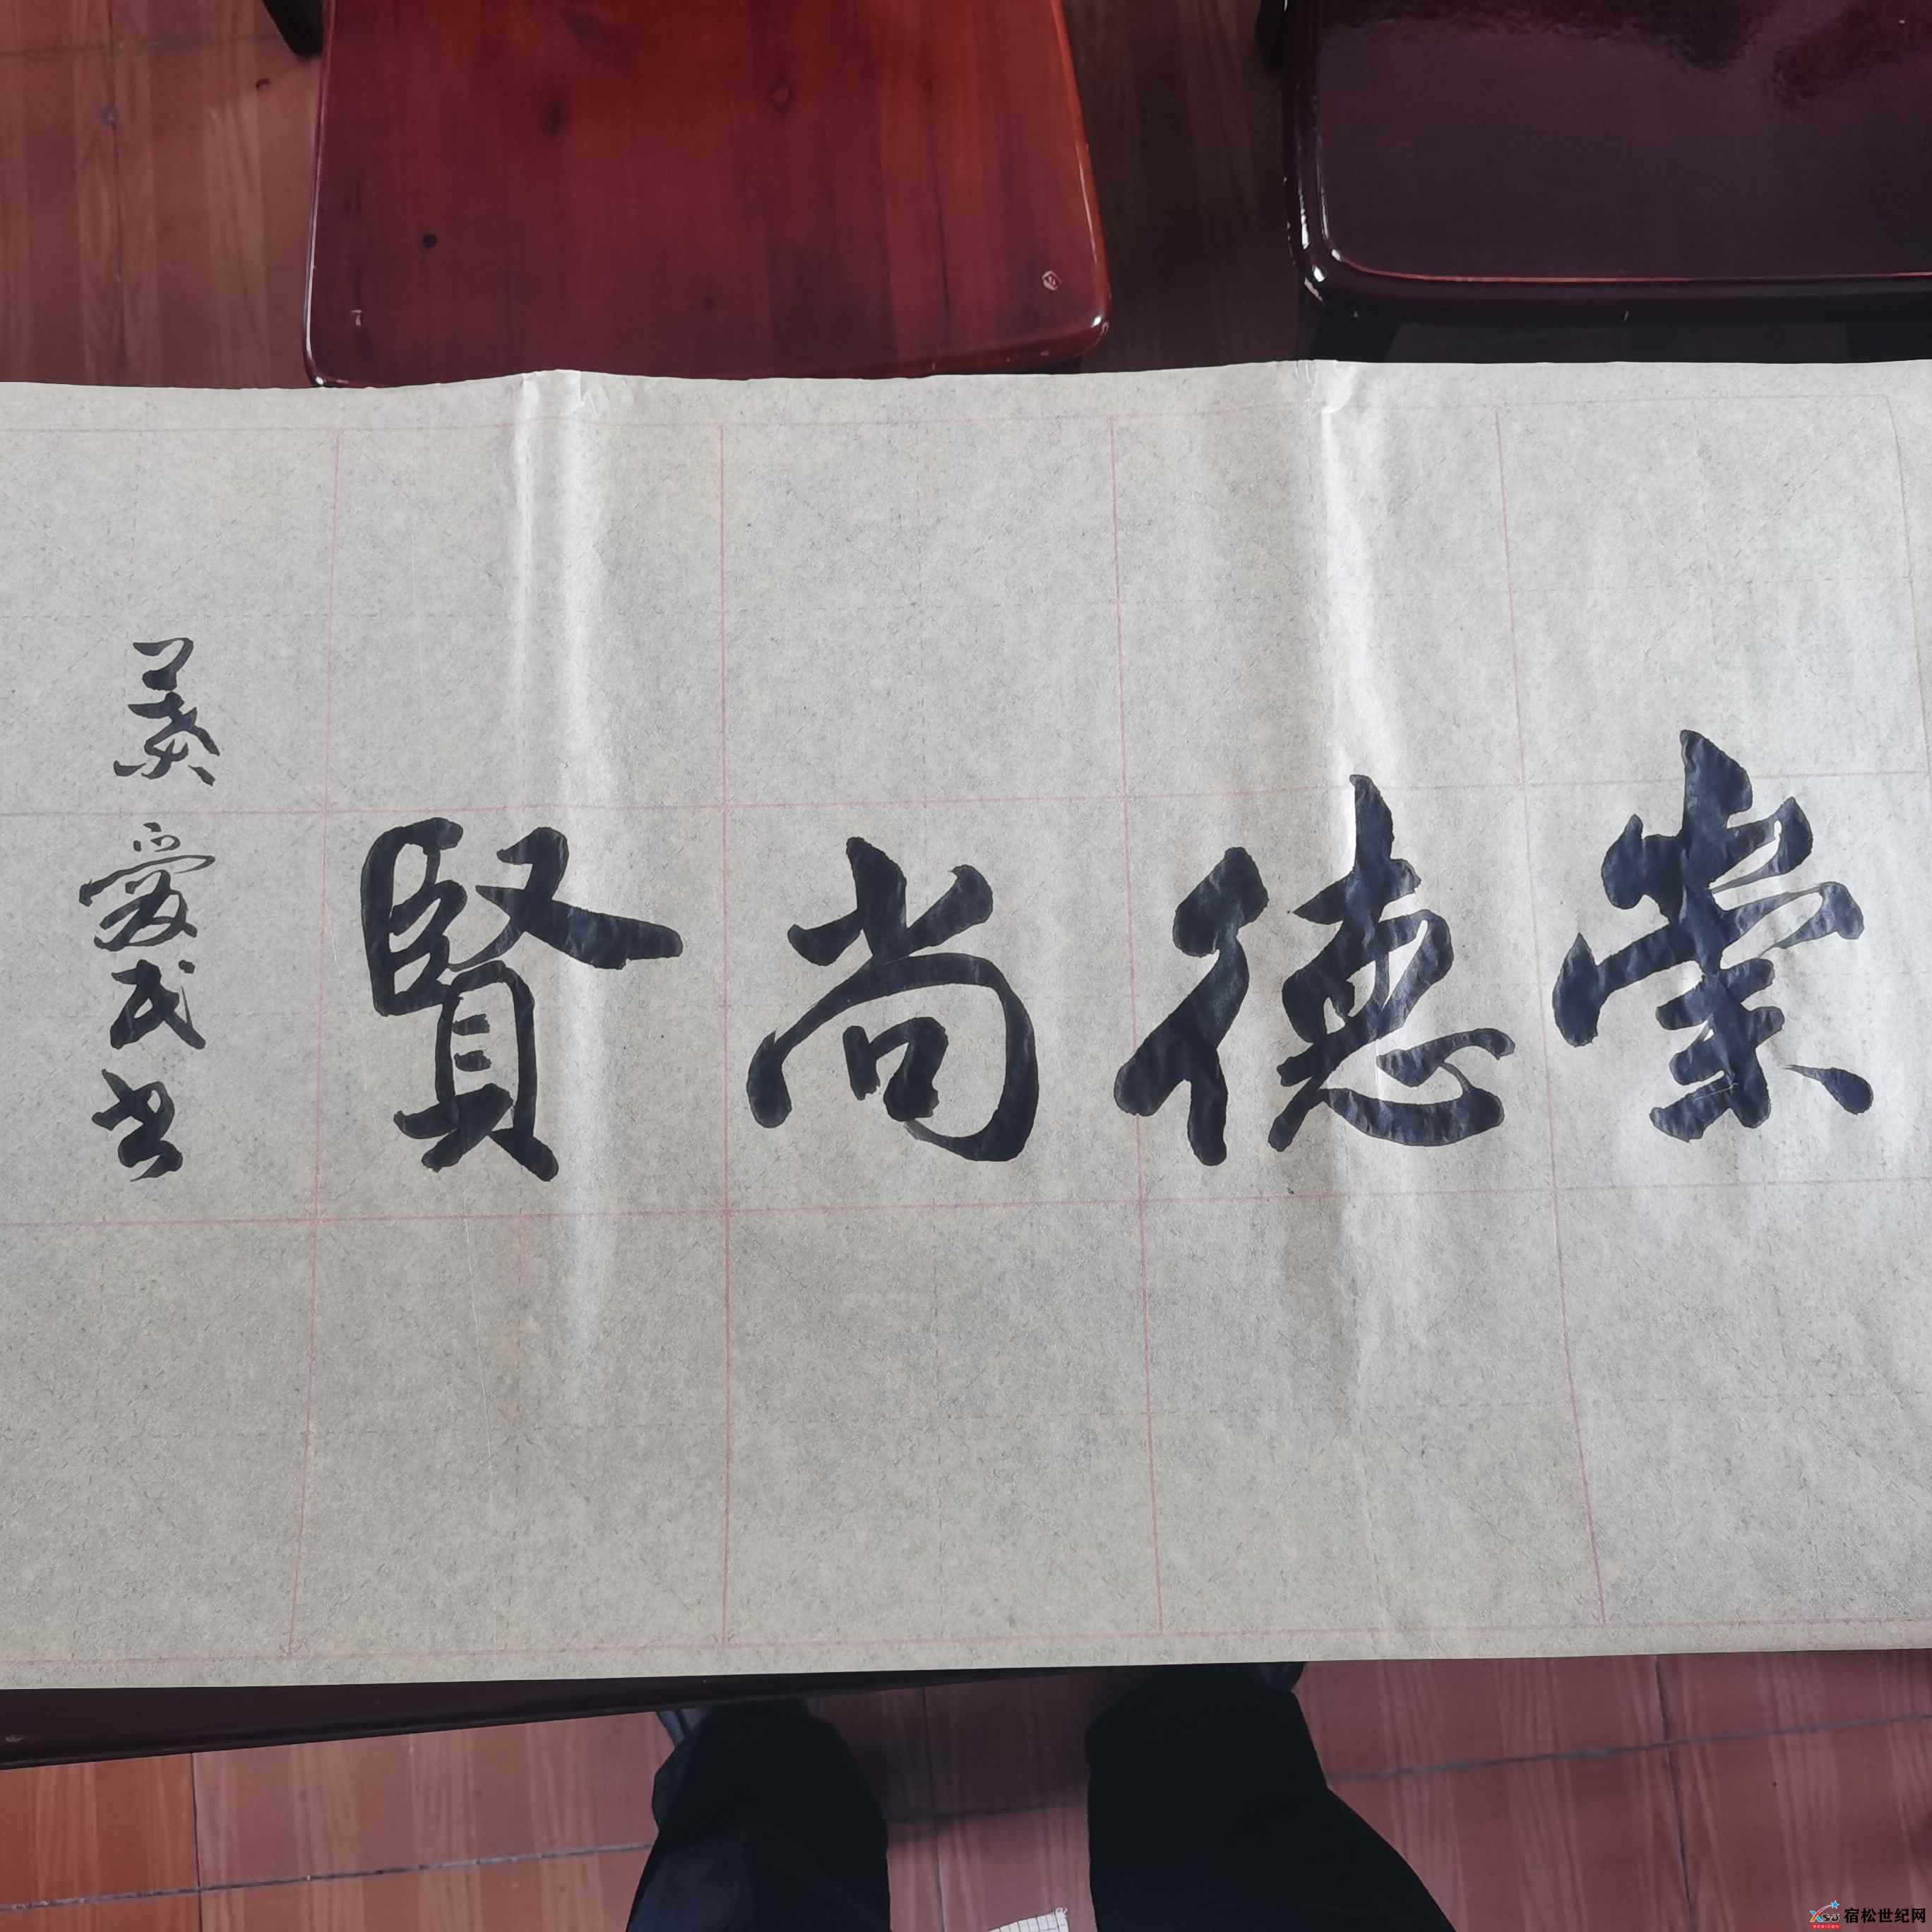 崇德尚賢
愛民书
宿松世纪网